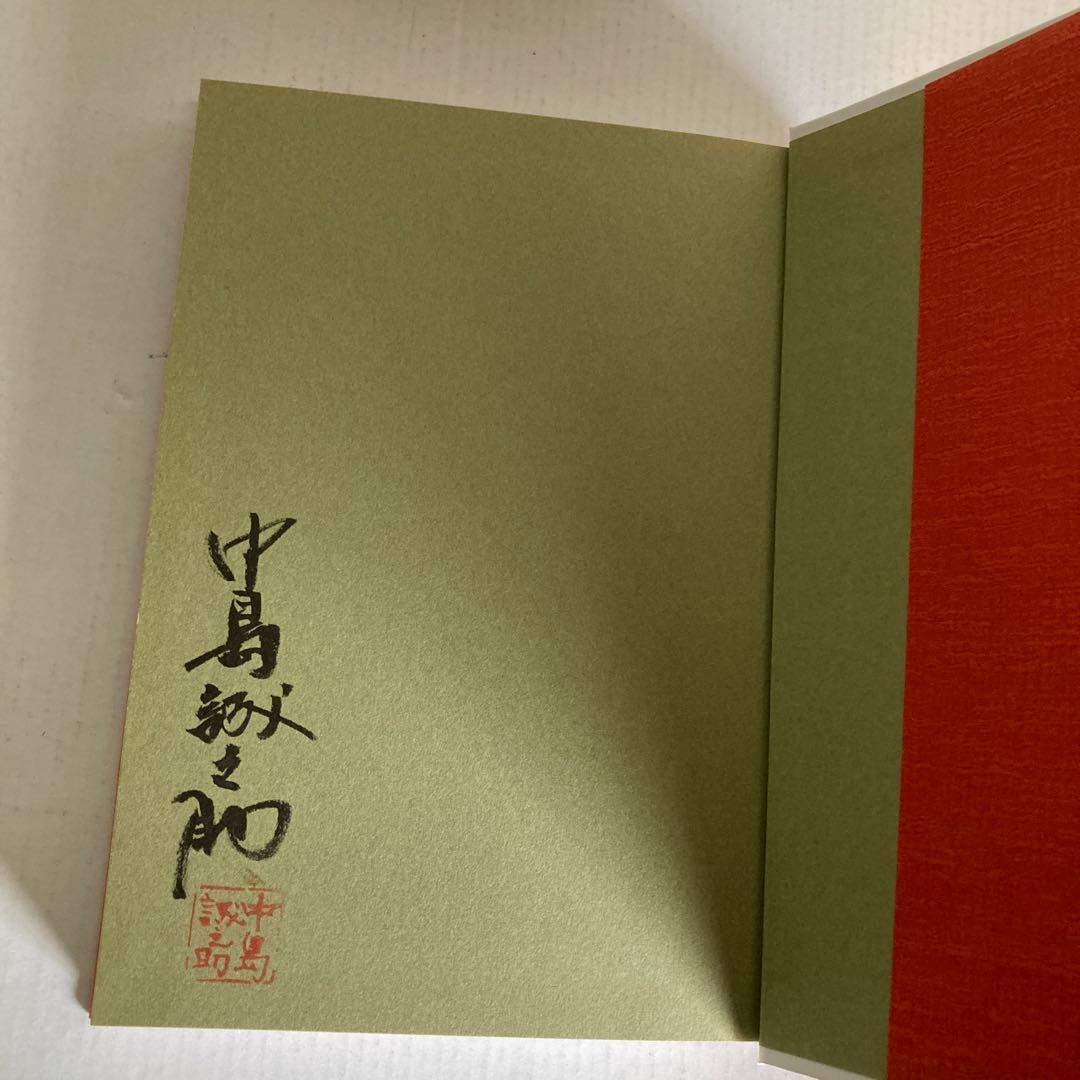 中島誠之助
中島
誠之助